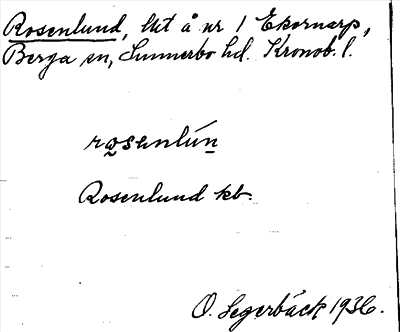 Rosenlund, lht å nr 1 Ekornarp,
Berga sn, Sunnerbo hd. Kronob. l.
rosenlún
Rosenlund kb.
O. Segerbäck 1936.